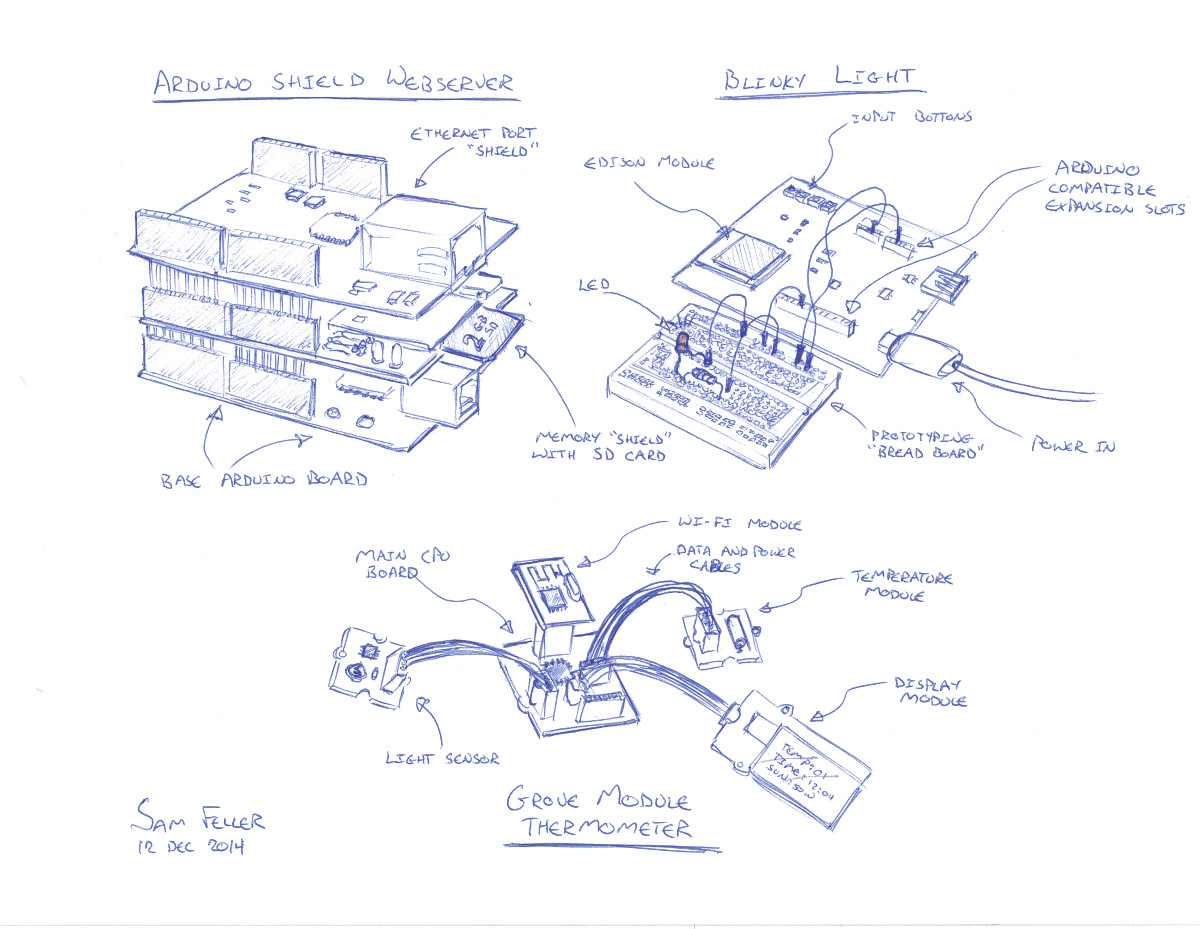 ARDUINO SHIELD WEBSERVER
ETHERNET PORT
"SHIELD"
MEMORY "SHIELD"
WITH SD CARD
BASE ARDUINO BOARD
BLINKY LIGHT
INPUT BUTTONS
EDISON MODULE
ARDUINO
COMPATIBLE
EXPANSION SLOTS
LED
PROTOTYPING
"BREAD BOARD"
POWER IN
WI-FI MODULE
MAIN CPU
BOARD
DATA AND POWER
CABLES
TEMPERATURE
MODULE
DISPLAY
MODULE
LIGHT SENSOR
TIME: 12:04
GROVE MODULE
THERMOMETER
SAM FELLER
12 DEC 2014